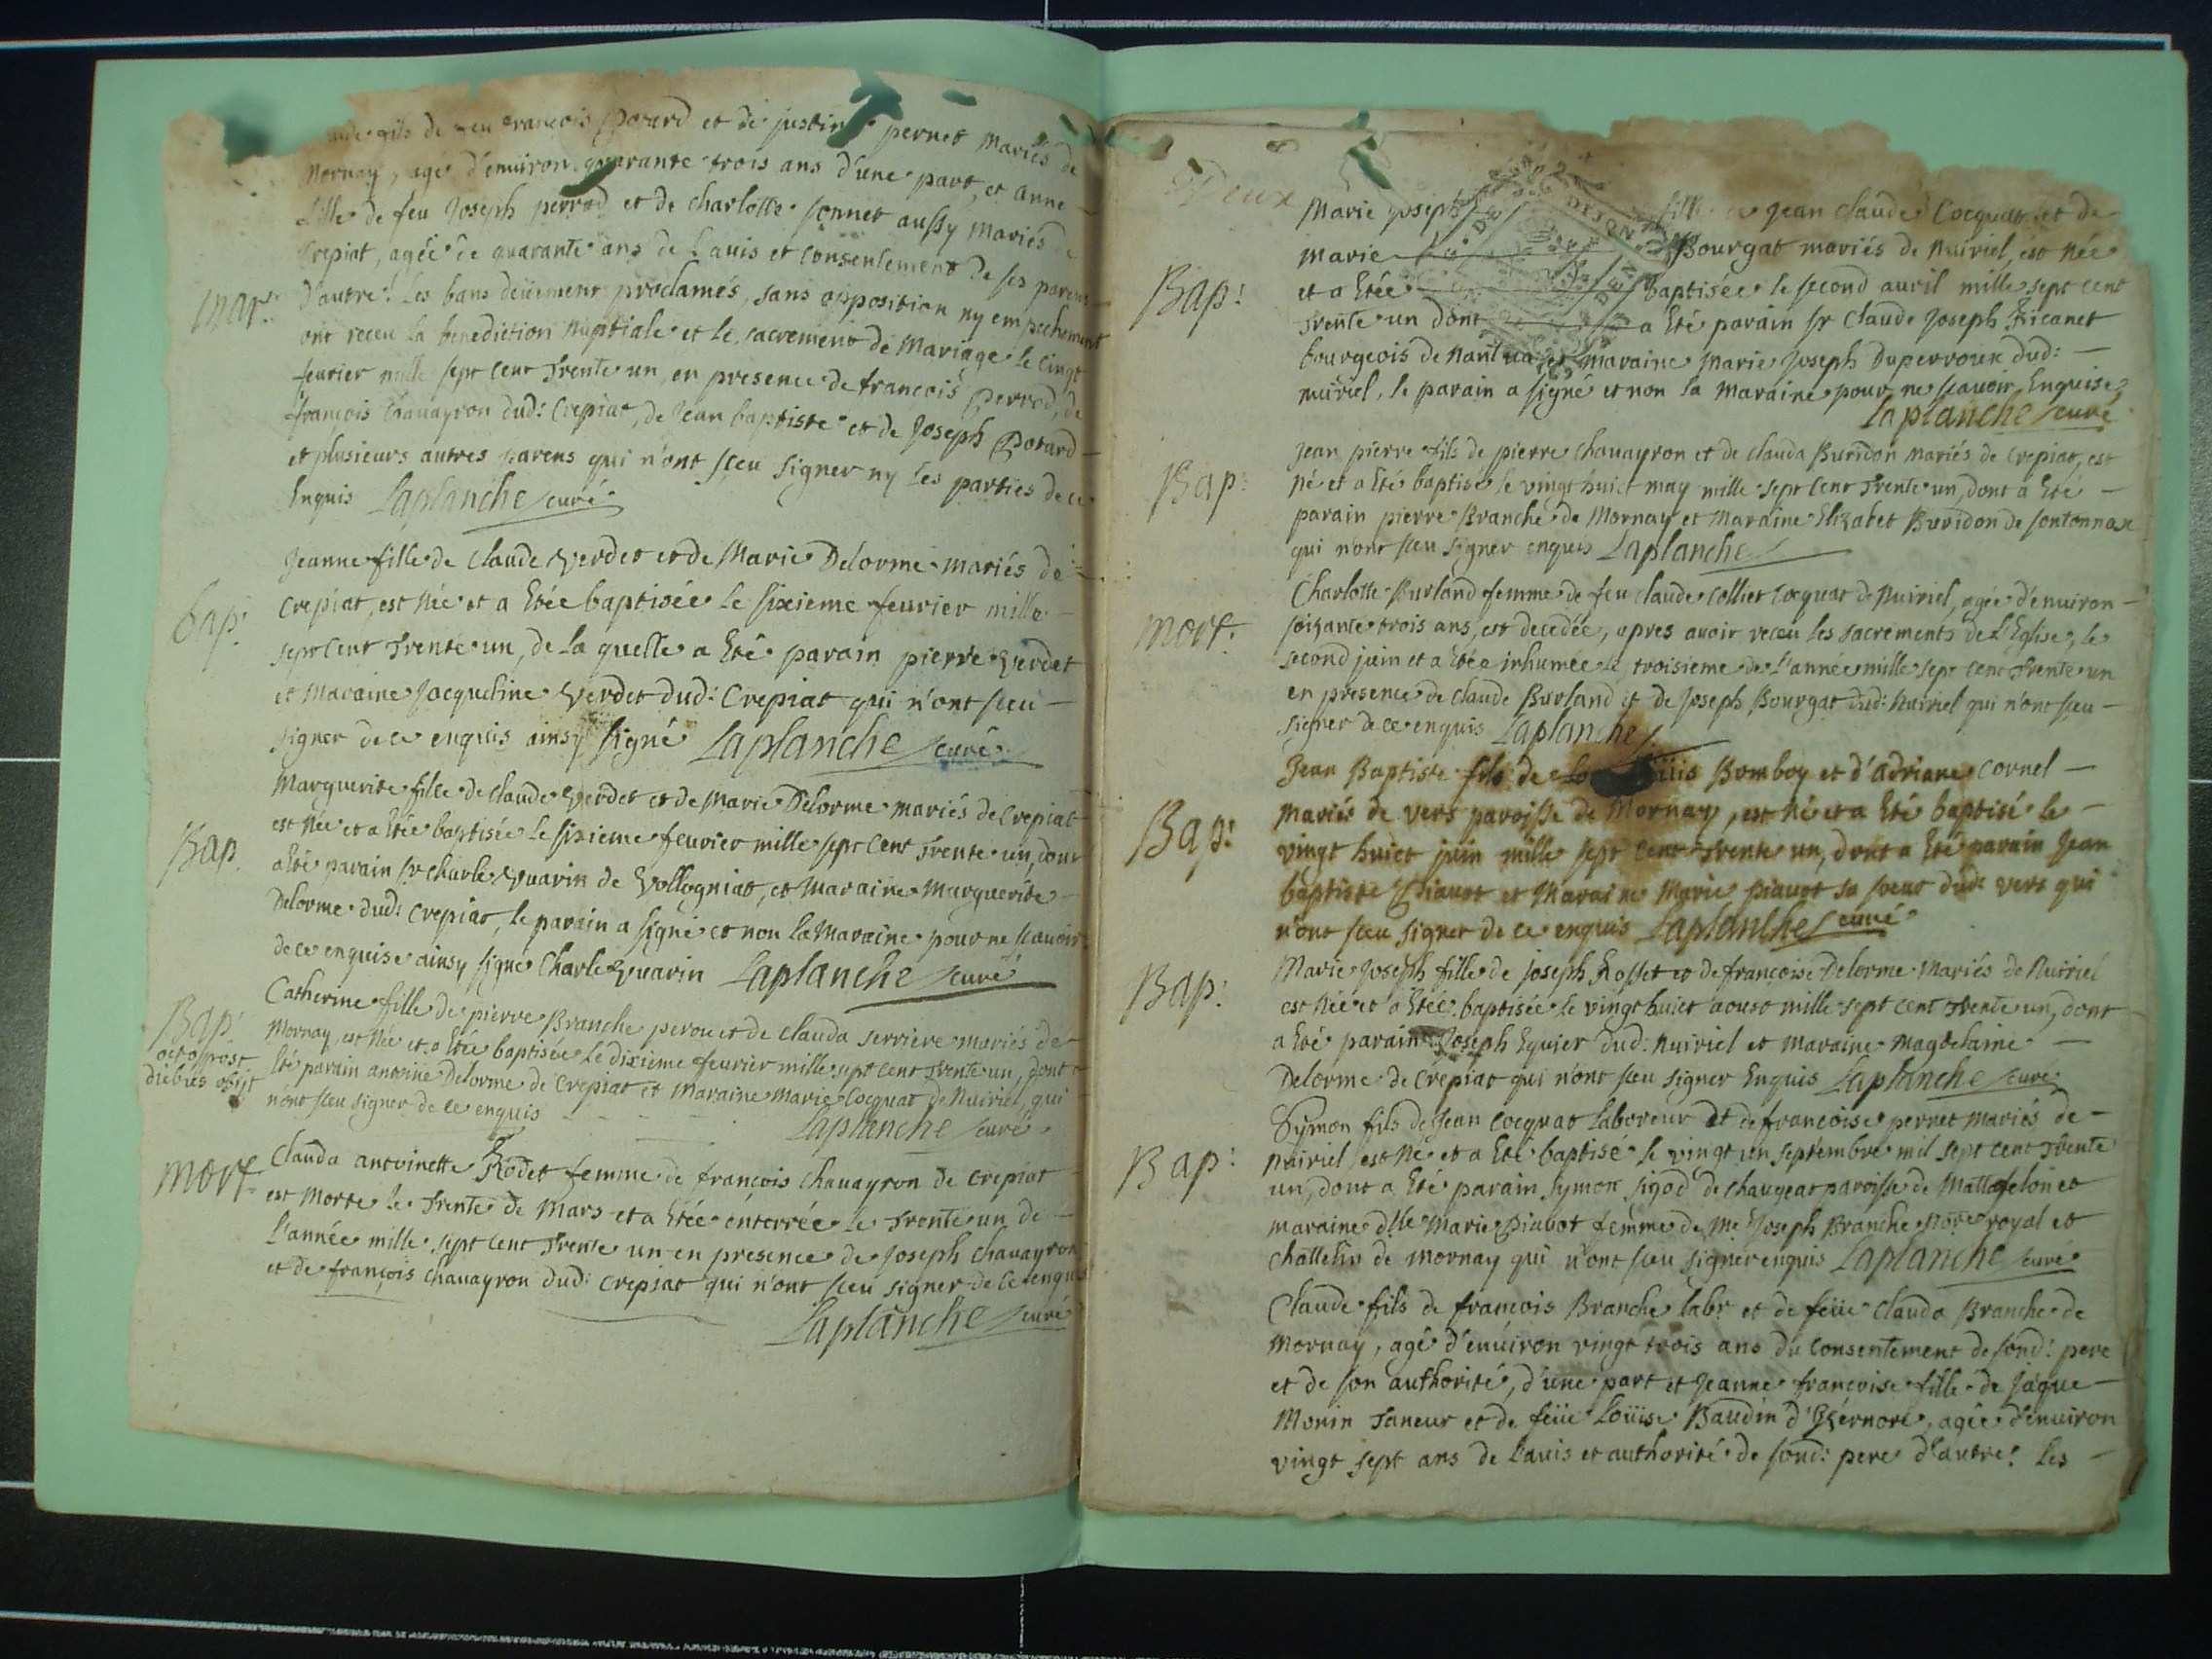 fils de feu françois Potard et de justine pernet Mariés de
Mornay, agé d'enuiron quarante trois ans d'une part, et anne
fille de feu Joseph perrod et de charlotte sonnet aussy Mariés de
Crepiat, agée de quarante ans de Lauis et Consentement de ses parens
Mar: d'autre! les bans deüement proclamés, sans opposition ny empechement
ont receu la benediction Nuptiale et le sacrement de Mariage le cinq
feurier mille sept cent trente un, en presence de francois Perrod, de
francois chauayron dud: Crepiat, de Jean baptiste et de Joseph Potard
et plusieurs autres parens qui n'ont sceu signer ny les parties de ce
Enquis Laplanche curé
Jeanne fille de Claude Verdet et de Marie Delorme mariés de
bap: Crepiat, est Née et a Etée baptisée le sixieme feurier mille
sept Cent trente un, de la quelle a Eté parain pierre Verdet
et Maraine Jacqueline Verdet dud: Crepiat qui n'ont sceu
signer de ce enquis ainsy signé Laplanche curé
Marguerite fille de Claude Verdet et de Marie Delorme mariés de Crepiat
Bap est Née et a Etée baptisée le sixieme feurier mille sept Cent trente un, dont
a Eté parain sr Charle Vuarin de Vollogniat, et Maraine Marguerite
Delorme dud: Crepiat, le parain a signé et non la Maraine pour ne scauoir
de ce enquise ainsy signé Charle Vuarin Laplanche curé
Catherine fille de pierre Branche perou et de Clauda serriere mariés de
Bap: Mornay, est Née et a Etée baptisée Le dixieme feurier mille sept cent trente un, dont a
octo post Eté parain antoine Delorme de Crepiat et Maraine Marie Cocquat de Nuiriel, qui
diebus obijt n'ont sceu signer de ce enquis
Laplanche curé
Mort Clauda antoinette Rodet femme de françois Chauayron de Crepiat
est Morte le trente de Mars et a Etée enterrée le trente un de
l'année mille sept cent trente un en presence de Joseph Chauayron
et de françois Chauayron dud: crepiat qui n'ont sceu signer de ce enquis
Laplanche curé
Deux
Marie Joseph fille de Jean Claude Cocquat et de
Marie Bourgat mariés de Nuiriel, est Née
Bap: et a Etée baptisée le second auril mille sept cent
trente un dont a Eté parain sr Claude Joseph Fricanet
bourgeois de Nantua et Maraine Marie Joseph Duperroux dud:
nuiriel, le parain a signé et non la Maraine pour ne scauoir Enquise
Laplanche curé
Jean pierre fils de pierre Chauayron et de Clauda Buridon Mariés de Crepiat, est
Bap: né et a Eté baptisé le vingt huict may mille sept Cent trente un, dont a Eté
parain pierre Branche de Mornay et Maraine Elizabet Buridon de sontonnax
qui n'ont sceu signer enquis Laplanche
Charlotte Burland femme de feu claude Colliet Cocquat de Nuiriel, agée d'enuiron
Mort: soixante trois ans, est decedée, apres auoir receu les sacrements de l'Eglise, le
second juin et a Etée inhumée le troisieme de l'année mille sept cent trente un
en presence de Claude Burland et de Joseph Bourgat dud: Nuiriel qui n'ont sceu
signer de ce enquis Laplanche
Jean Baptiste fils de Bomboy et d'adriane Cornel
Bap: Mariés de vers paroisse de Mornay, est Né et a Eté baptisé le
vingt huict juin mille sept Cent trente un, dont a Eté parain Jean
baptiste Piauot et Maraine Marie piauot sa soeur dud: vers qui
n'ont sceu signer de ce enquis Laplanche curé
Marie Joseph fille de Joseph Rosset et de françoise Delorme Mariés de Nuiriel
Bap: est Née et a Etée baptisée le vingt huict aoust mille sept cent trente un, dont
a Eté parain Joseph Eguier dud: Nuiriel et maraine Magdelaine
Delorme de Crepiat qui n'ont sceu signer Enquis Laplanche curé
Symon fils de Jean Cocquat Laboreur et de francoise perret Mariés de
Bap: Nuiriel est Né et a Eté baptisé le vingt un septembre mil sept cent trente
un, dont a Eté parain Symon sigod de Chaugeat paroisse de Mattafelon et
maraine dlle Marie Piauot femme de Me Joseph Branche Nore royal et
Chattelin de Mornay qui n'ont sceu signer enquis Laplanche curé
Claude fils de francois Branche labr et de feüe Clauda Branche de
Mornay, agé d'enuiron vingt trois ans du consentement de sond: pere
et de son authorité, d'une part et Jeanne francoise fille de Jaque
Monin taneur et de feüe Loüise Baudin d'Izernore, agée d'enuiron
vingt sept ans de Lauis et authorité de sond: pere d'autre! les